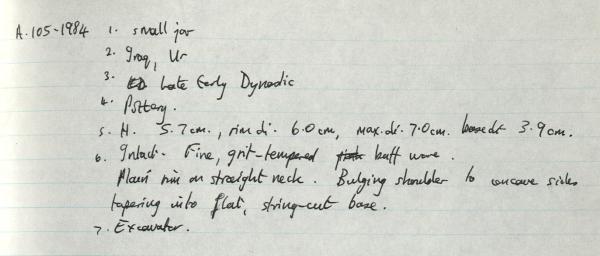 A.105-1984 1. small jar
2. Iraq, Ur
3. Late Early Dynastic
4. Pottery.
5. H. 5.7cm., rim di. 6.0cm, max.di. 7.0cm. base di 3.9cm.
6. Intact. Fine, grit-tempered buff ware.
Plain rim on straight neck. Bulging shoulder to concave sides
tapering into flat, string-cut base.
7. Excavator.